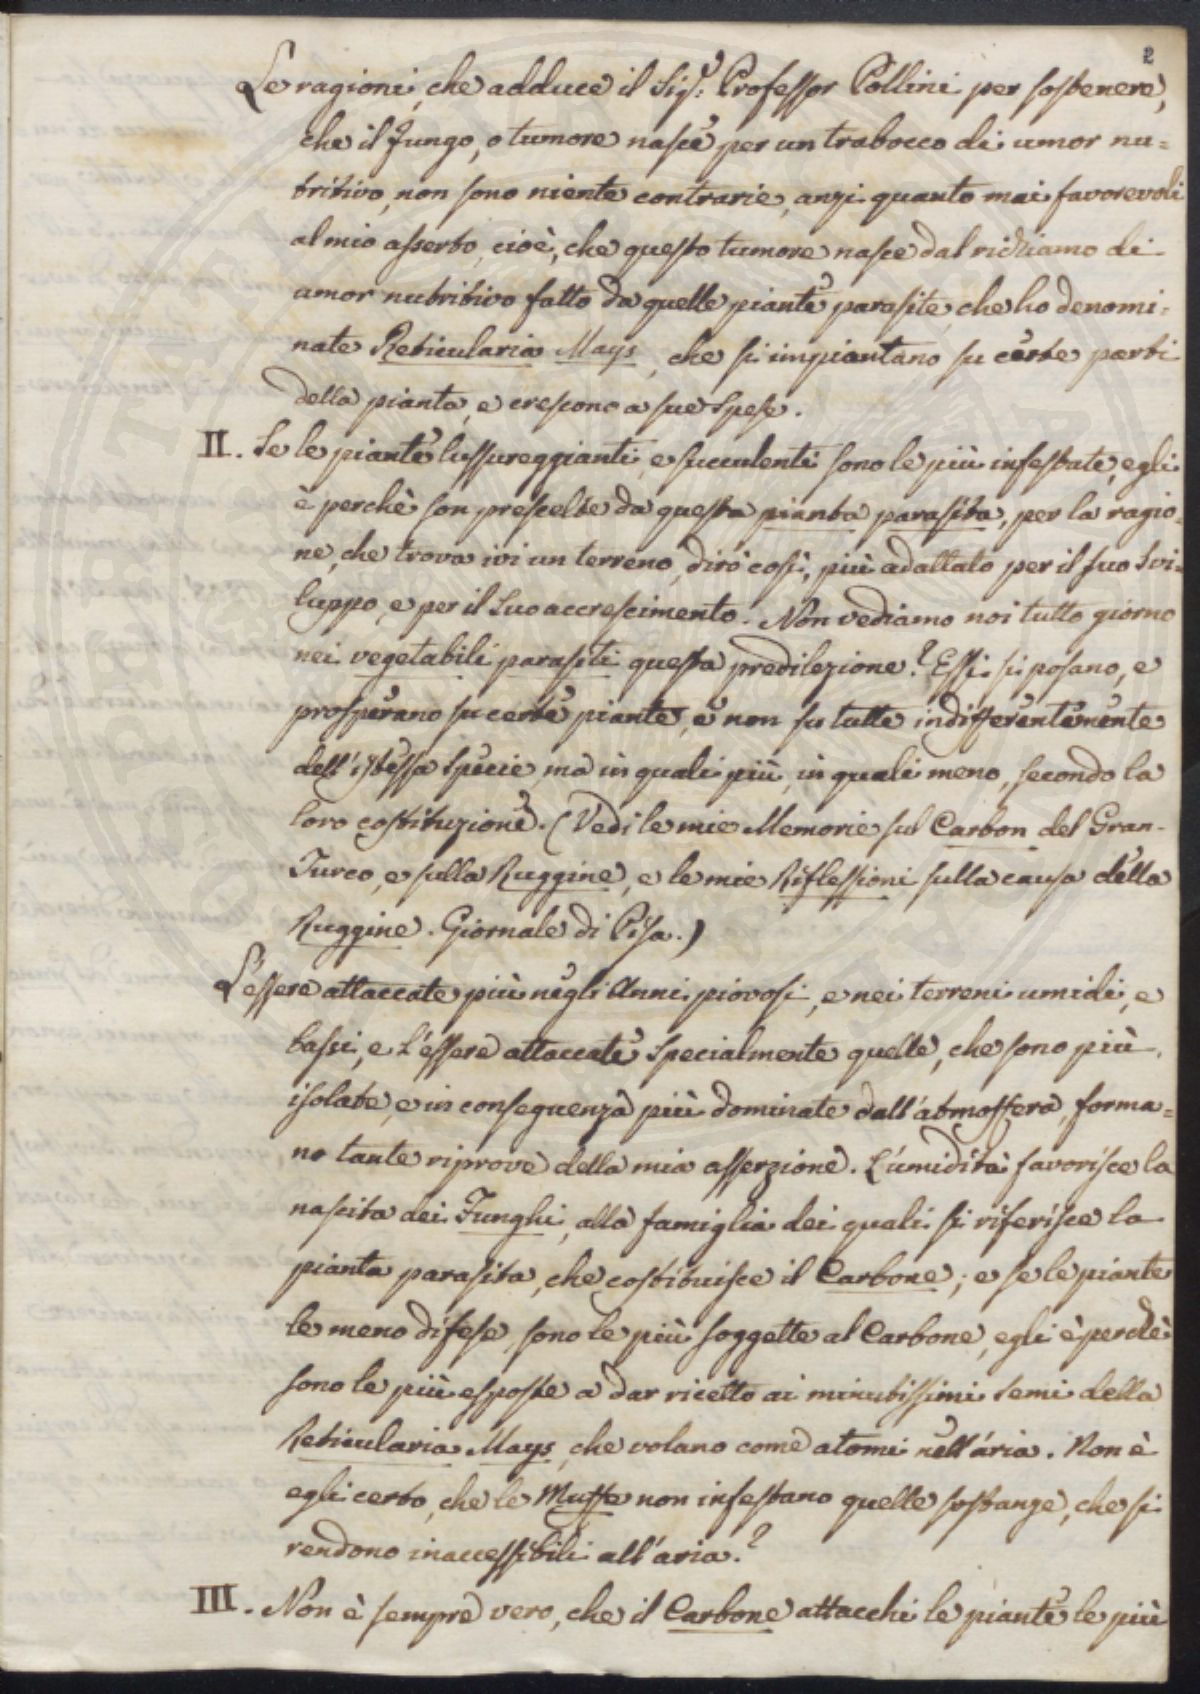 2
Le ragioni, che adduce il Sigr. Professor Pollini per sostenere,
che il Fungo, o tumore nasce per un trabocco di umor nu=
tritivo, non sono niente contrarie, anzi quanto mai favorevoli
al mio asserto, cioè, che questo tumore nasce dal richiamo di
umor nutritivo fatto da quelle piante parasite, che ho denomi=
nate Reticularia Mays, che si impiantano su certe parti
della pianta, e crescono a sue spese.
II. Se le piante lussureggianti, e succulenti sono le più infestate, egli
è perchè son prescelte da questa pianta parasita, per la ragio=
ne, che trova ivi un terreno, dirò così, più adattato per il suo svi=
luppo, e per il suo accrescimento. Non vediamo noi tutto giorno
nei vegetabili parasiti questa predilezione? Essi si posano, e
prosperano su certe piante, e non su tutte indifferentemente
dell'istessa specie, ma in quali più, in quali meno, secondo la
loro costituzione. (Vedi le mie Memorie sul Carbon del Gran-
Turco, e sulla Ruggine, e le mie Riflessioni sulla causa della
Ruggine. Giornale di Pisa.)
L'essere attaccate più negli Anni piovosi, e nei terreni umidi, e
bassi, e l'essere attaccate specialmente quelle, che sono più
isolate, e in conseguenza più dominate dall'atmosfera, forma=
no tante riprove della mia asserzione. L'umidità favorisce la
nascita dei Funghi, alla famiglia dei quali si riferisce la
pianta parasita, che costituisce il Carbone; e se le piante
le meno difese, sono le più soggette al Carbone, egli è perchè
sono le più esposte a dar ricetto ai minutissimi semi della
Reticularia Mays, che volano come atomi nell'aria. Non è
egli certo, che le Muffe non infestano quelle sostanze, che si
rendono inaccessibili all'aria?
III. Non è sempre vero, che il Carbone attacchi le piante le più